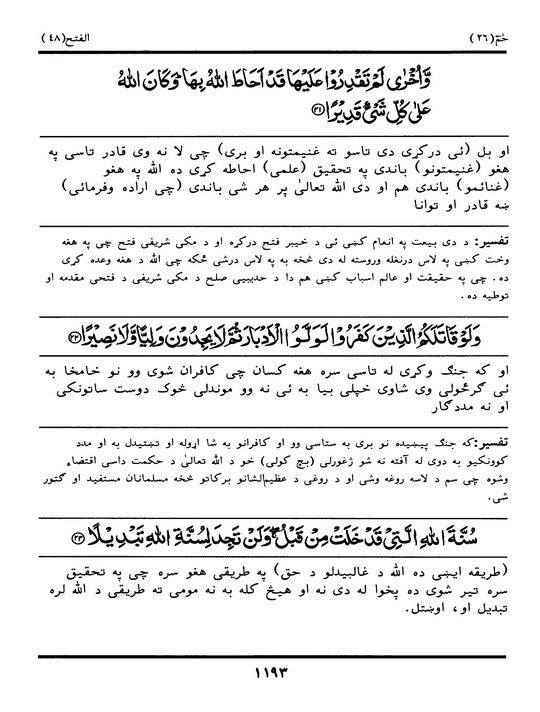 حٰمٓ(۲٦) الفتح(٤٨)
وَّاُخْرٰى لَمْ تَقْدِرُوْا عَلَيْهَا قَدْ اَحَاطَ اللّٰهُ بِهَا ؕ وَكَانَ اللّٰهُ
عَلٰى كُلِّ شَىْءٍ قَدِيْرًا ﴿۲۱﴾
او بل (ئى درکړى دى تاسو ته غنيمتونه او برى) چى لا نه وى قادر تاسى په
هغو (غنيمتونو) باندى په تحقيق (علمى) احاطه کړى ده الله په هغو
(غنائمو) باندى هم او دى الله تعالىٰ پر هر شى باندى (چى اراده وفرمائى)
ښه قادر او توانا
تفسير: د دى بيعت په انعام کښى ئى د خيبر فتح درکړه او د مکى شريفى فتح چى په هغه
وخت کښى په لاس درنغله وروسته له دى څخه به په لاس درشى ځکه چى الله د هغه وعده کړى
ده. چى په حقيقت او عالم اسباب کښى هم دا د حديبيى صلح د مکى شريفى د فتحى مقدمه او
توطيه ده.
وَلَوْ قَاتَلَكُمُ الَّذِيْنَ كَفَرُوْا لَوَلَّوُا الْاَدْبَارَ ثُمَّ لَا يَجِدُوْنَ وَلِيًّا وَّلَا نَصِيْرًا ﴿۲۲﴾
او که جنګ وکړى له تاسى سره هغه کسان چى کافران شوى وو نو خامخا به
ئى ګرځولى وى شاوى خپلى بيا به ئى نه وو موندلى څوک دوست ساتونکى
او نه مددګار
تفسير: که جنګ پيښيده نو برى به ستاسى وو او کافرانو به شا اړوله او تښتيدل به او مدد
کوونکيو به دوى له آفته نه شو ژغورلى (بچ کولى) خو د الله تعالىٰ د حکمت داسى اقتضاء
وشوه چى سم د لاسه روغه وشى او د روغى د عظيم‌الشانو برکاتو څخه مسلمانان مستفيد او ګټور
شى.
سُنَّةَ اللّٰهِ الَّتِىْ قَدْ خَلَتْ مِنْ قَبْلُ ۖ وَلَنْ تَجِدَ لِسُنَّةِ اللّٰهِ تَبْدِيْلًا ﴿۲۳﴾
(طريقه ايښى ده الله د غالبيدلو د حق) په طريقى هغو سره چى په تحقيق
سره تير شوى ده پخوا له دى نه او هيڅ کله به نه مومى ته طريقى د الله لره
تبديل او، اوښتل.
١١٩٣